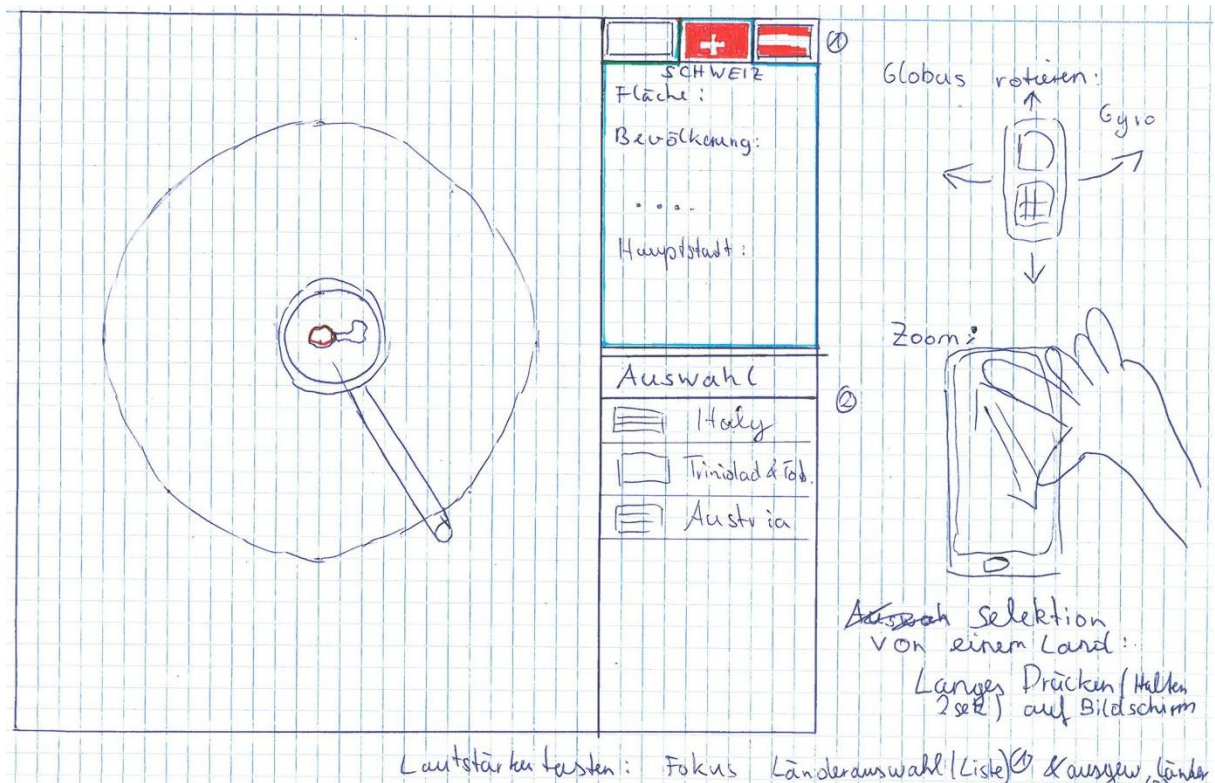 ①
SCHWEIZ
Fläche :
Bevölkerung:
....
Hauptstadt :
Auswahl
②
Italy
Trinidad & Tob.
Austria
Globus rotieren:
Gyro
Zoom:
Selektion
von einem Land:
Langes Drücken (Halten
2sek) auf Bildschirm
Lautstärketasten: Fokus Länderauswahl (Liste) & ausgew. Länder